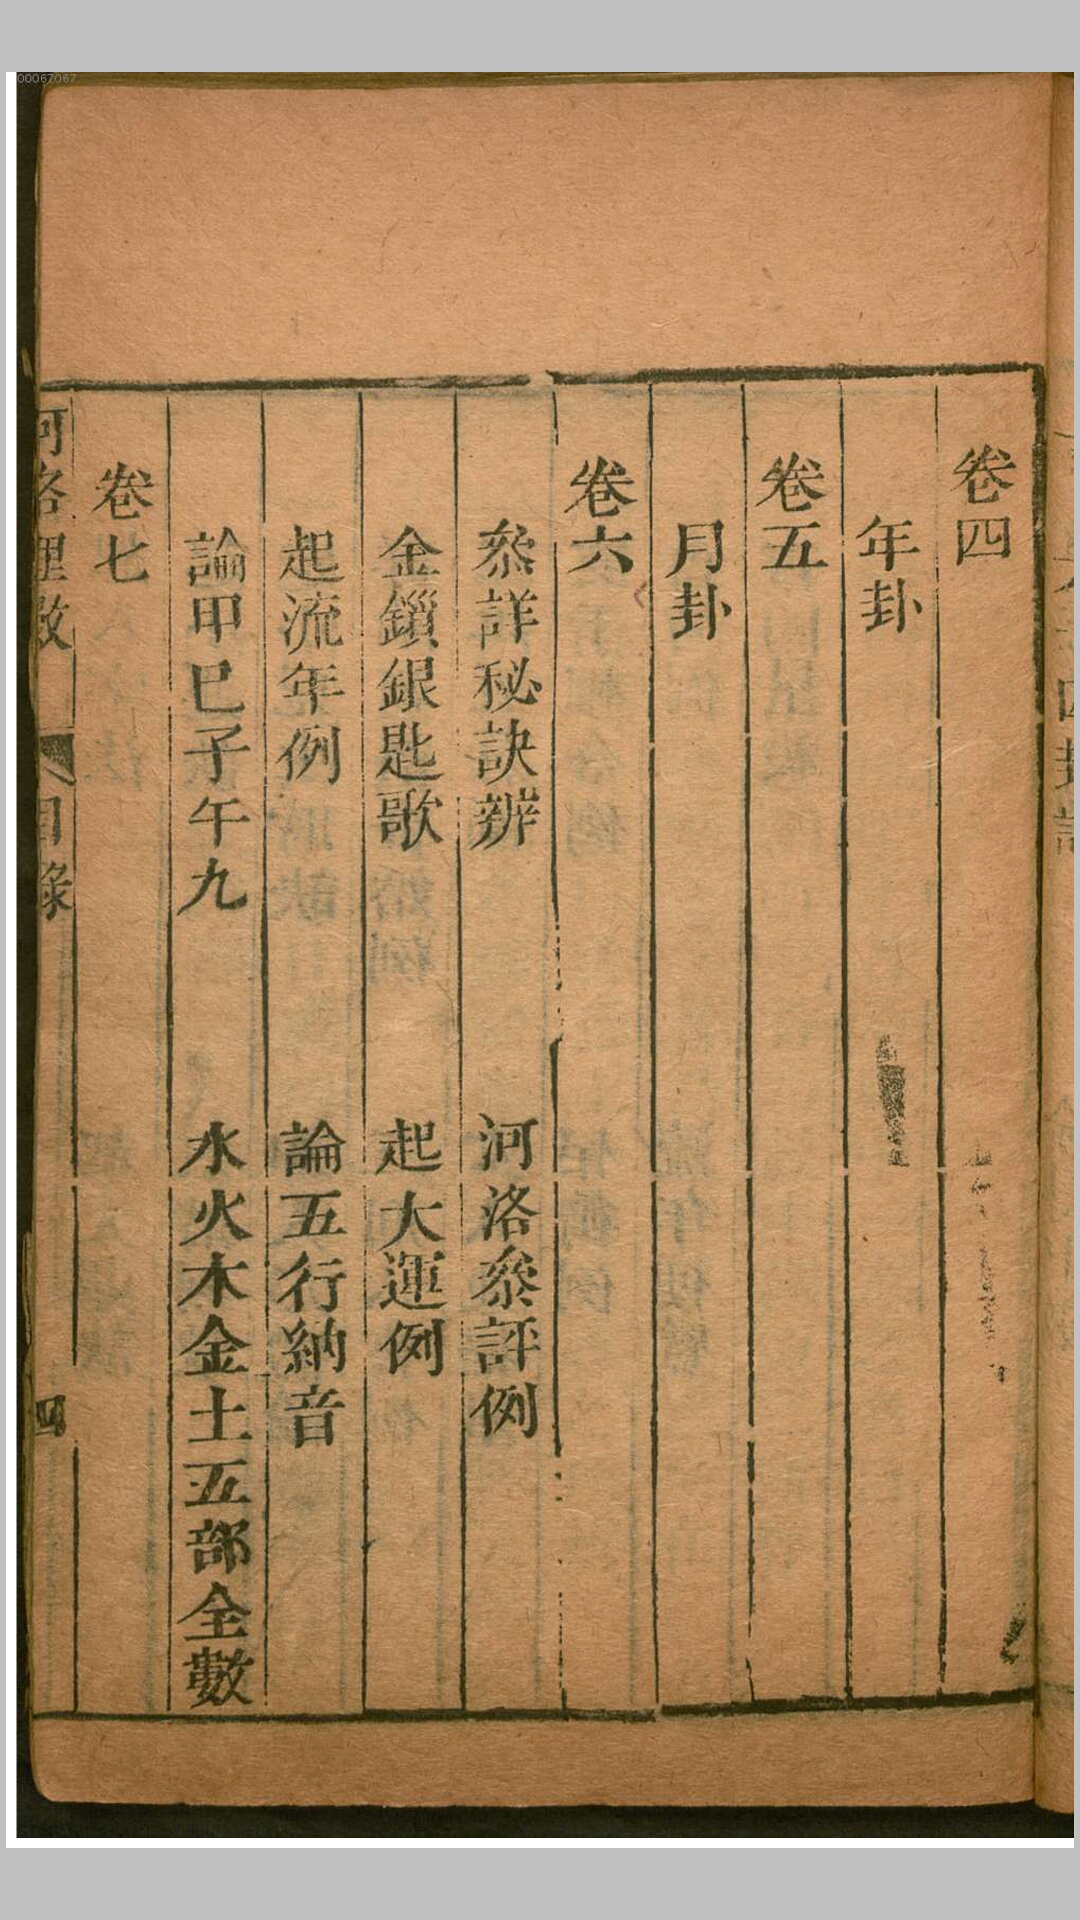 00067067
卷四
年卦
卷五
月卦
卷六
叅詳秘訣辨 河洛叅評例
金鎖銀匙歌 起大運例
起流年例 論五行納音
論甲巳子午九 水火木金土五部全數
卷七
河洛理數 目錄 四